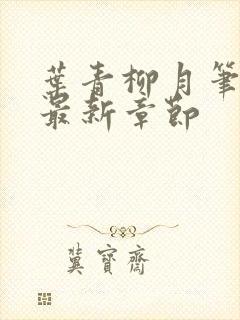 葉青柳月筆
最新章節
冀寶齋